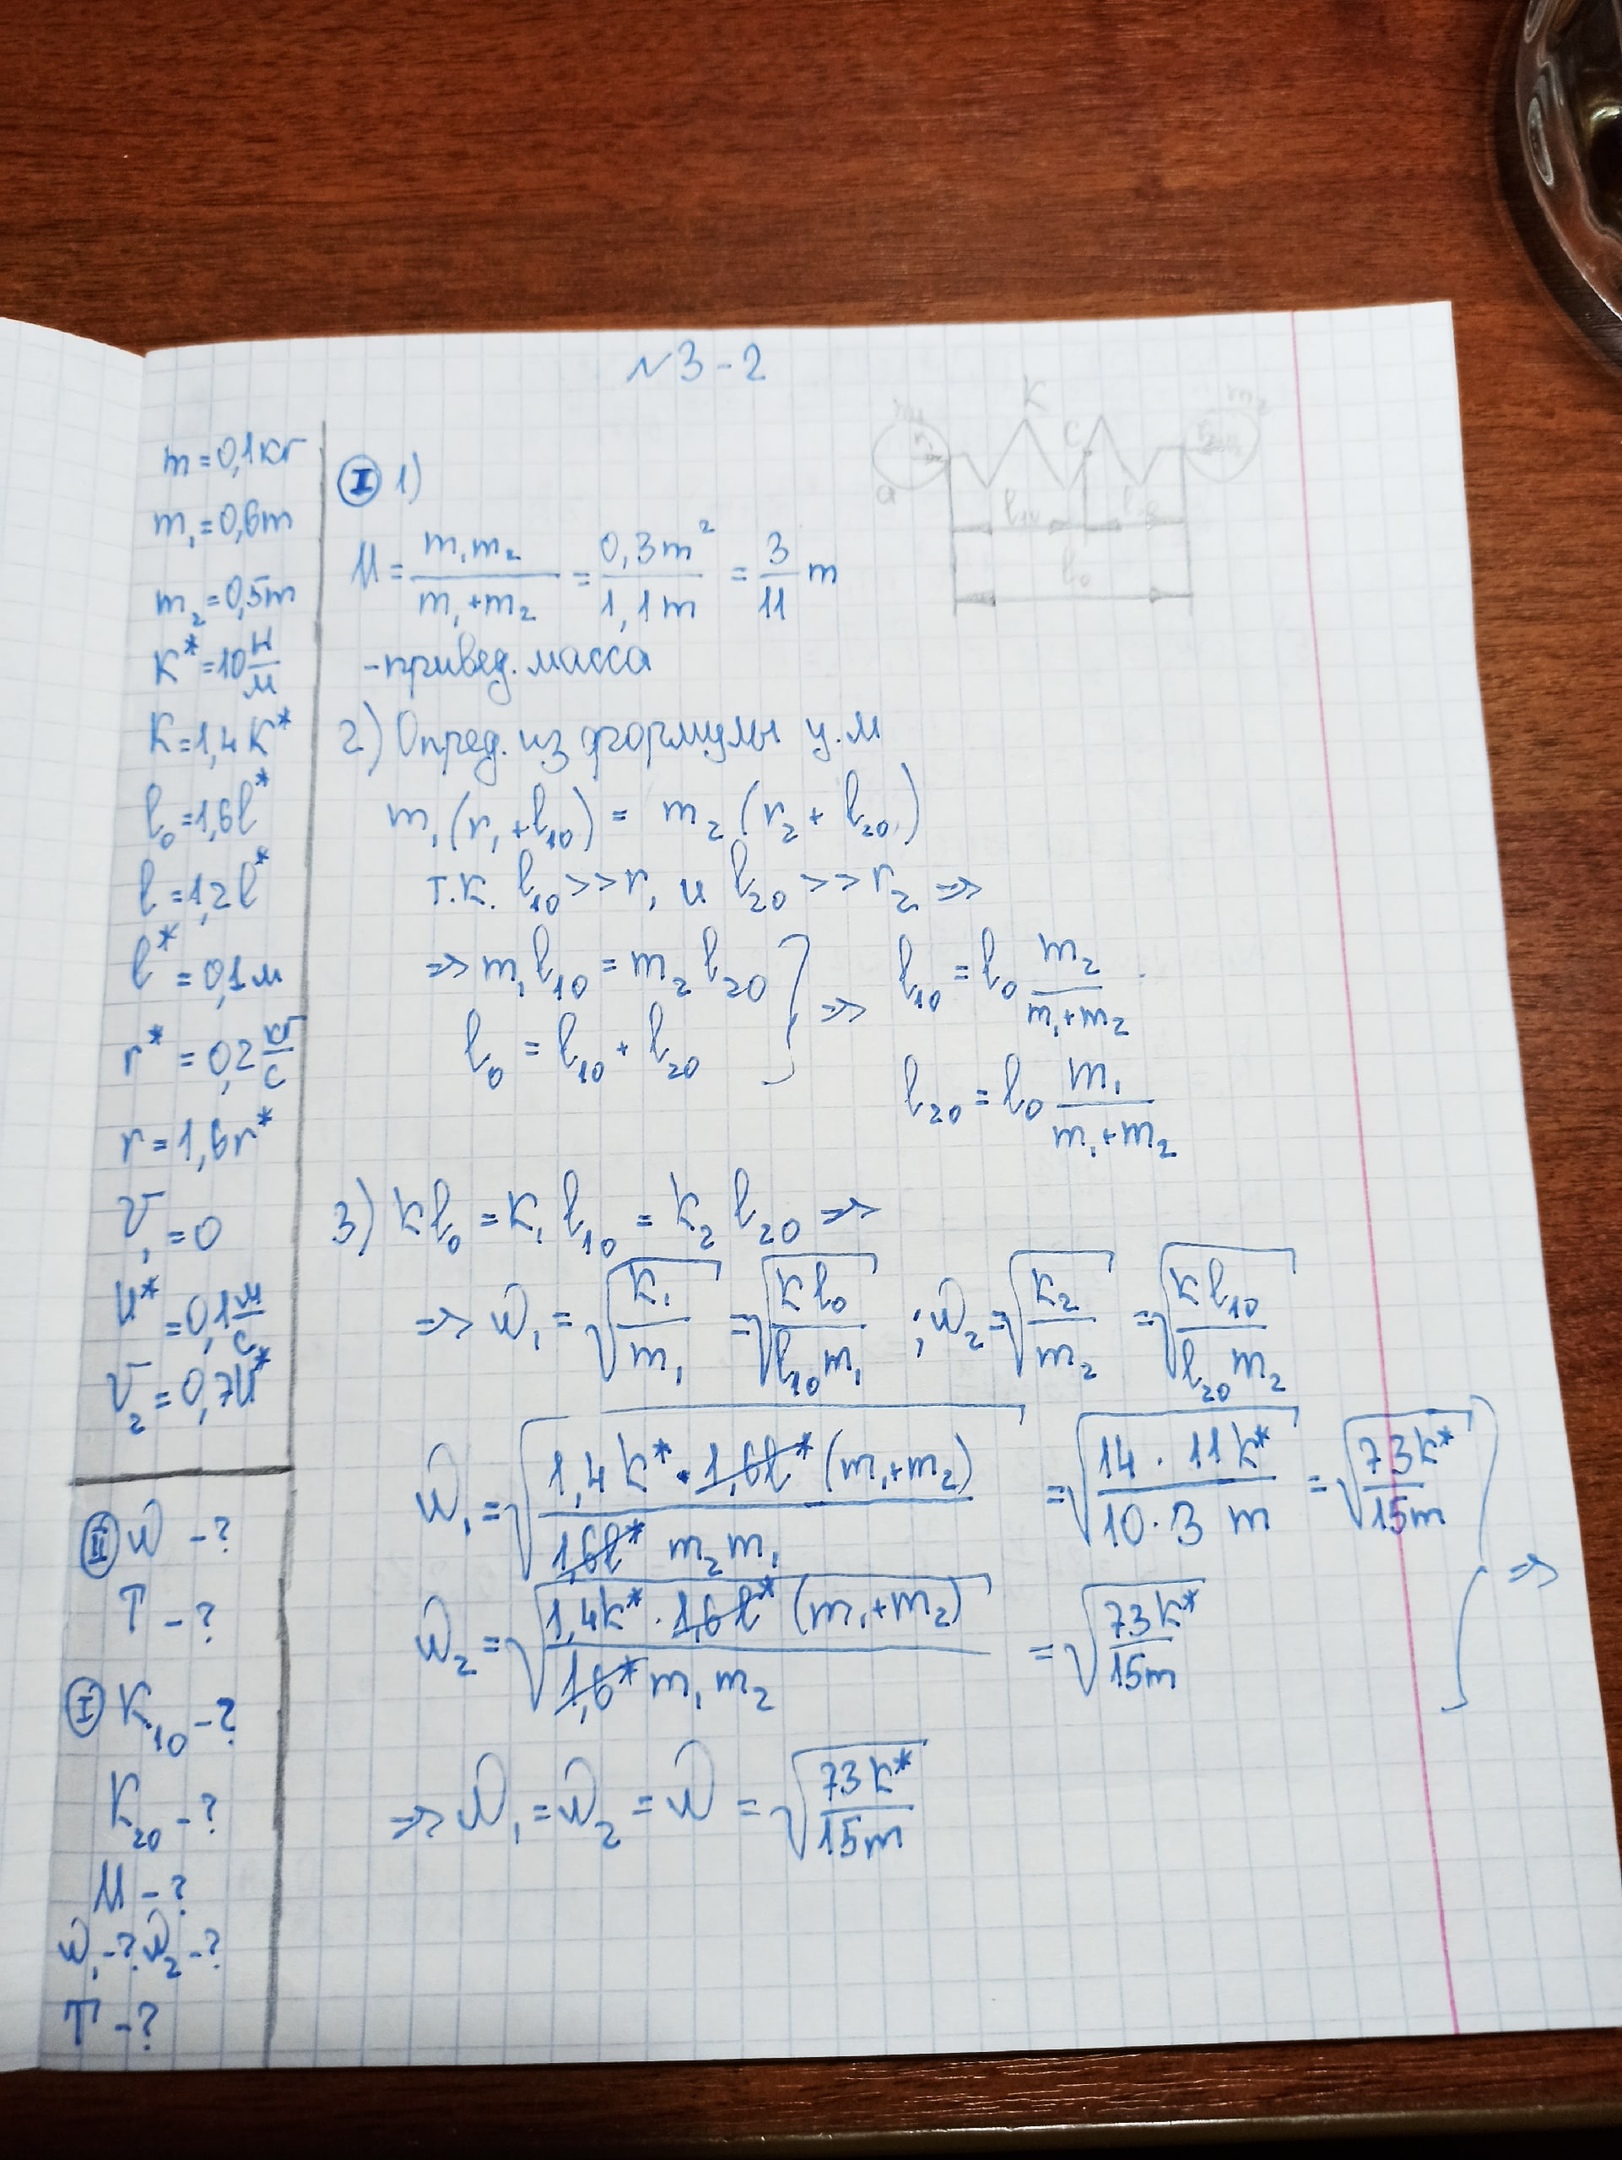 №3-2
m = 0,1 кг
m₁ = 0,6m
m₂ = 0,5m
K* = 10 Н/м
K = 1,4K*
l₀ = 1,6l*
l = 1,2l*
l* = 0,1м
r* = 0,2 кг/с
r = 1,6r*
V₁ = 0
U* = 0,1 м/с
V₂ = 0,7U*
Ⅱ ω - ?
T - ?
Ⅰ K₁₀ - ?
K₂₀ - ?
M - ?
ω₁ - ? ω₂ - ?
T - ?
K C m₂
l₀
Ⅰ 1)
M = m₁m₂/(m₁+m₂) = 0,3m²/1,1m = 3/11 m
- привед. масса
2) Опред. из формулы ц.м
m₁(r₁ + l₁₀) = m₂(r₂ + l₂₀)
т.к. l₁₀ >> r₁ и l₂₀ >> r₂ ⇒
⇒ m₁l₁₀ = m₂l₂₀ } ⇒ l₁₀ = l₀ m₂/(m₁+m₂)
l₀ = l₁₀ + l₂₀
l₂₀ = l₀ m₁/(m₁+m₂)
3) Kl₀ = K₁l₁₀ = K₂l₂₀ ⇒
⇒ ω₁ = √(K₁/m₁) = √(Kl₀/(l₁₀m₁)) ; ω₂ = √(K₂/m₂) = √(Kl₁₀/(l₂₀m₂))
ω₁ = √(1,4K* · 1,6l* (m₁+m₂)/(1,6l* m₂m₁)) = √(14 · 11K*/(10 · 3 m)) = √(73K*/15m)
ω₂ = √(1,4K* · 1,6l* (m₁+m₂)/(1,6* m₁m₂)) = √(73K*/15m) } ⇒
⇒ ω₁ = ω₂ = ω = √(73K*/15m)